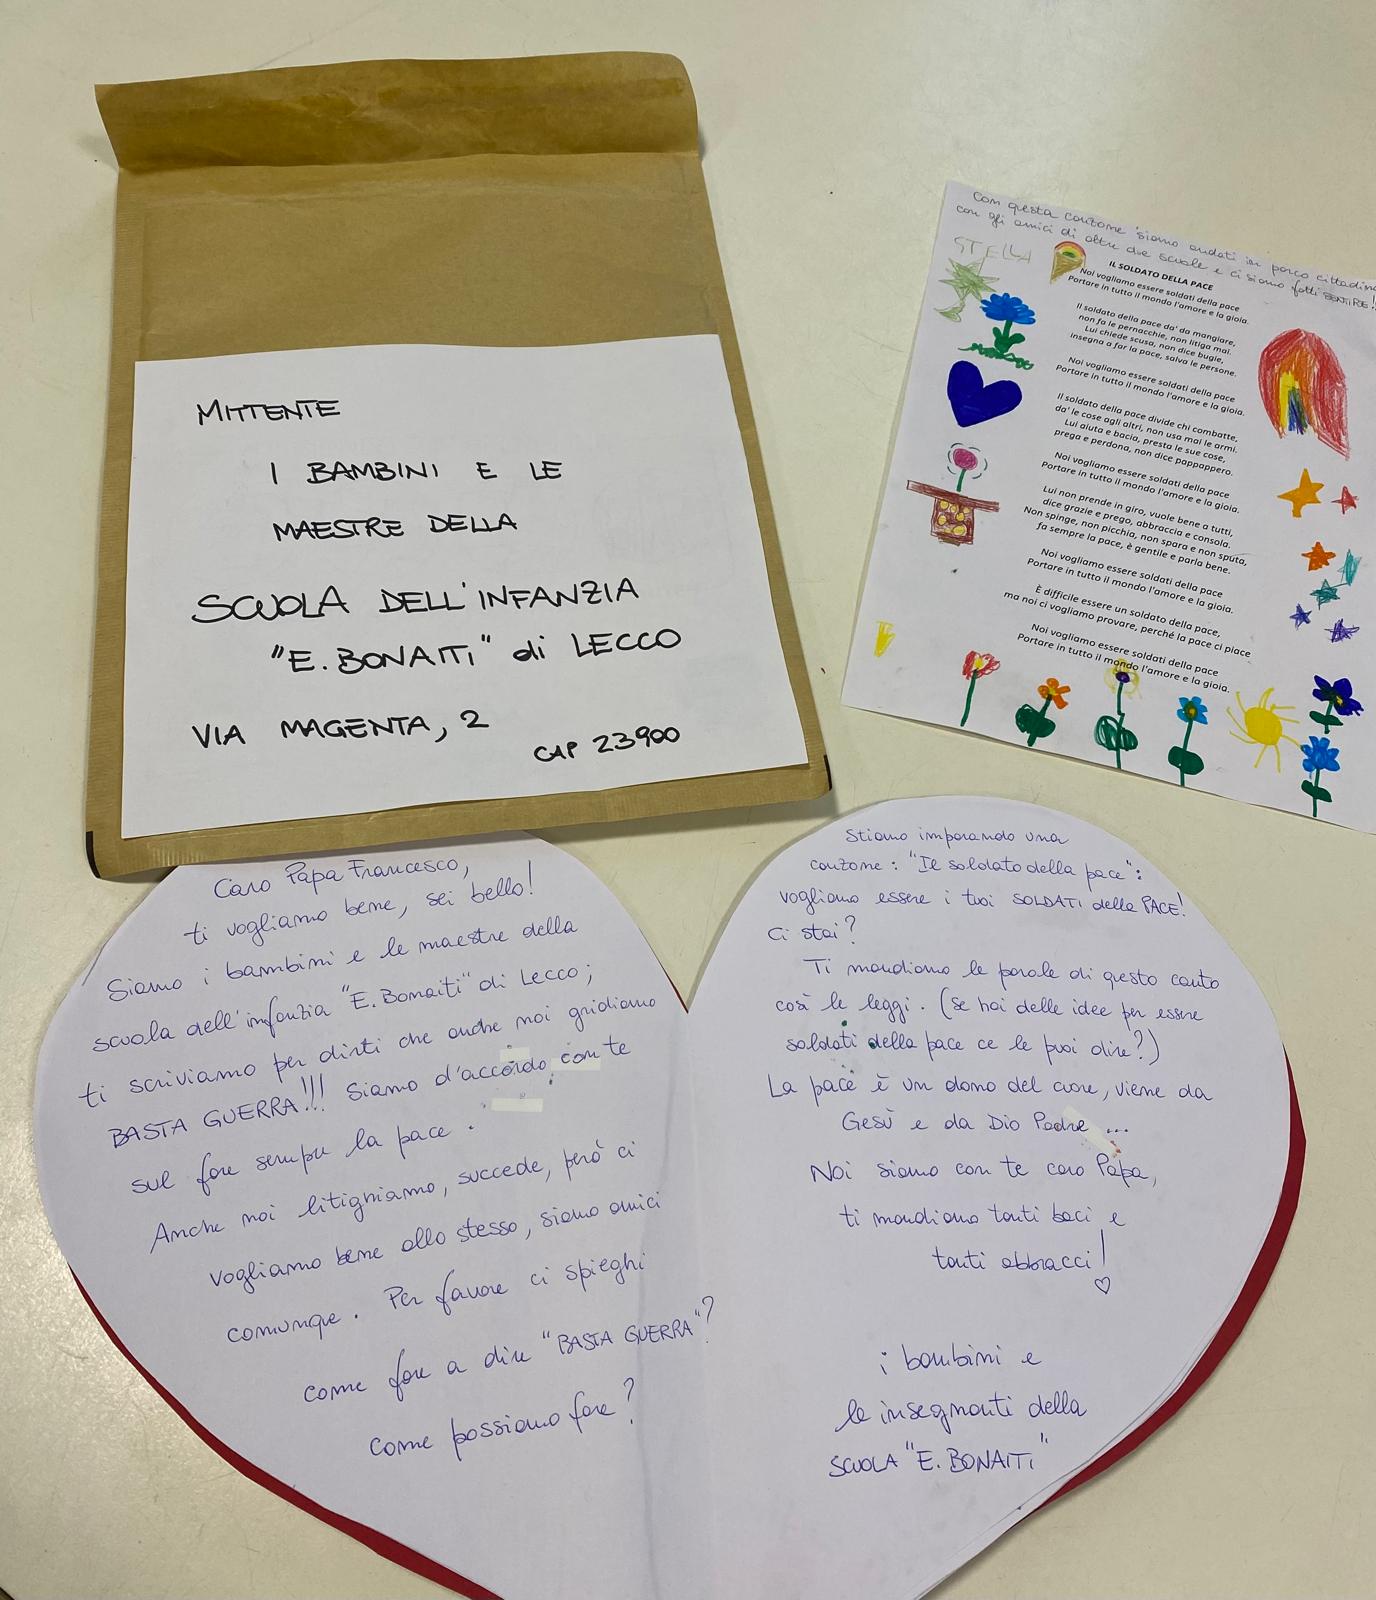 MITTENTE
I BAMBINI E LE
MAESTRE DELLA
SCUOLA DELL'INFANZIA
"E. BONAITI" di LECCO
VIA MAGENTA, 2
CAP 23900
Con questa canzone siamo andati in parco cittadino
con gli amici di altre due scuole e ci siamo fatti SENTIRE!!
STELLA
IL SOLDATO DELLA PACE
Noi vogliamo essere soldati della pace
Portare in tutto il mondo l'amore e la gioia.
Il soldato della pace da' da mangiare,
non fa le pernacchie, non litiga mai.
Lui chiede scusa, non dice bugie,
insegna a far la pace, salva le persone.
Noi vogliamo essere soldati della pace
Portare in tutto il mondo l'amore e la gioia.
Il soldato della pace divide chi combatte,
da' le cose agli altri, non usa mai le armi.
Lui aiuta e bacia, presta le sue cose,
prega e perdona, non dice pappappero.
Noi vogliamo essere soldati della pace
Portare in tutto il mondo l'amore e la gioia.
Lui non prende in giro, vuole bene a tutti,
dice grazie e prego, abbraccia e consola.
Non spinge, non picchia, non spara e non sputa,
fa sempre la pace, è gentile e parla bene.
Noi vogliamo essere soldati della pace
Portare in tutto il mondo l'amore e la gioia.
È difficile essere un soldato della pace,
ma noi ci vogliamo provare, perché la pace ci piace
Noi vogliamo essere soldati della pace
Portare in tutto il mondo l'amore e la gioia.
Caro Papa Francesco,
ti vogliamo bene, sei bello!
Siamo i bambini e le maestre della
scuola dell'infanzia "E. Bonaiti" di Lecco;
ti scriviamo per dirti che anche noi gridiamo
BASTA GUERRA!!! Siamo d'accordo con te
sul fare sempre la pace.
Anche noi litighiamo, succede, però ci
vogliamo bene allo stesso, siamo amici
comunque. Per favore ci spieghi
come fare a dire "BASTA GUERRA"?
come possiamo fare?
Stiamo imparando una
canzone: "Il soldato della pace":
vogliamo essere i tuoi SOLDATI della PACE!
Ci stai?
Ti mandiamo le parole di questo canto
così le leggi. (se hai delle idee per essere
soldati della pace ce le puoi dire?)
La pace è un dono del cuore, viene da
Gesù e da Dio Padre ...
Noi siamo con te caro Papa,
ti mandiamo tanti baci e
tanti abbracci!
i bambini e
le insegnanti della
SCUOLA "E. BONAITI"